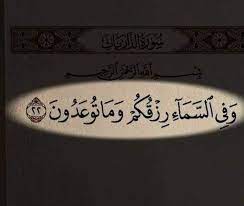 سُورَةُ الذَّارِيَاتِ
بِسْمِ اللَّهِ الرَّحْمَٰنِ الرَّحِيمِ
وَفِي السَّمَاءِ رِزْقُكُمْ وَمَا تُوعَدُونَ ٢٢